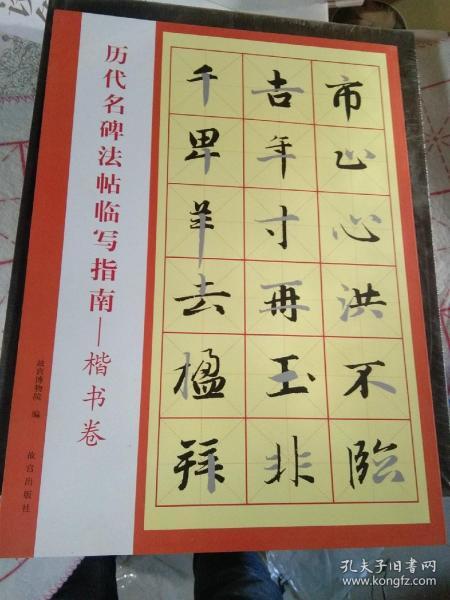 历代名碑法帖临写指南—楷书卷
故宫博物院 编
故宫出版社
千 吉 市
年 心
羊 寸 心
去 再 洪
楹 玉 不
拜 非 临
孔夫子旧书网
www.kongfz.com